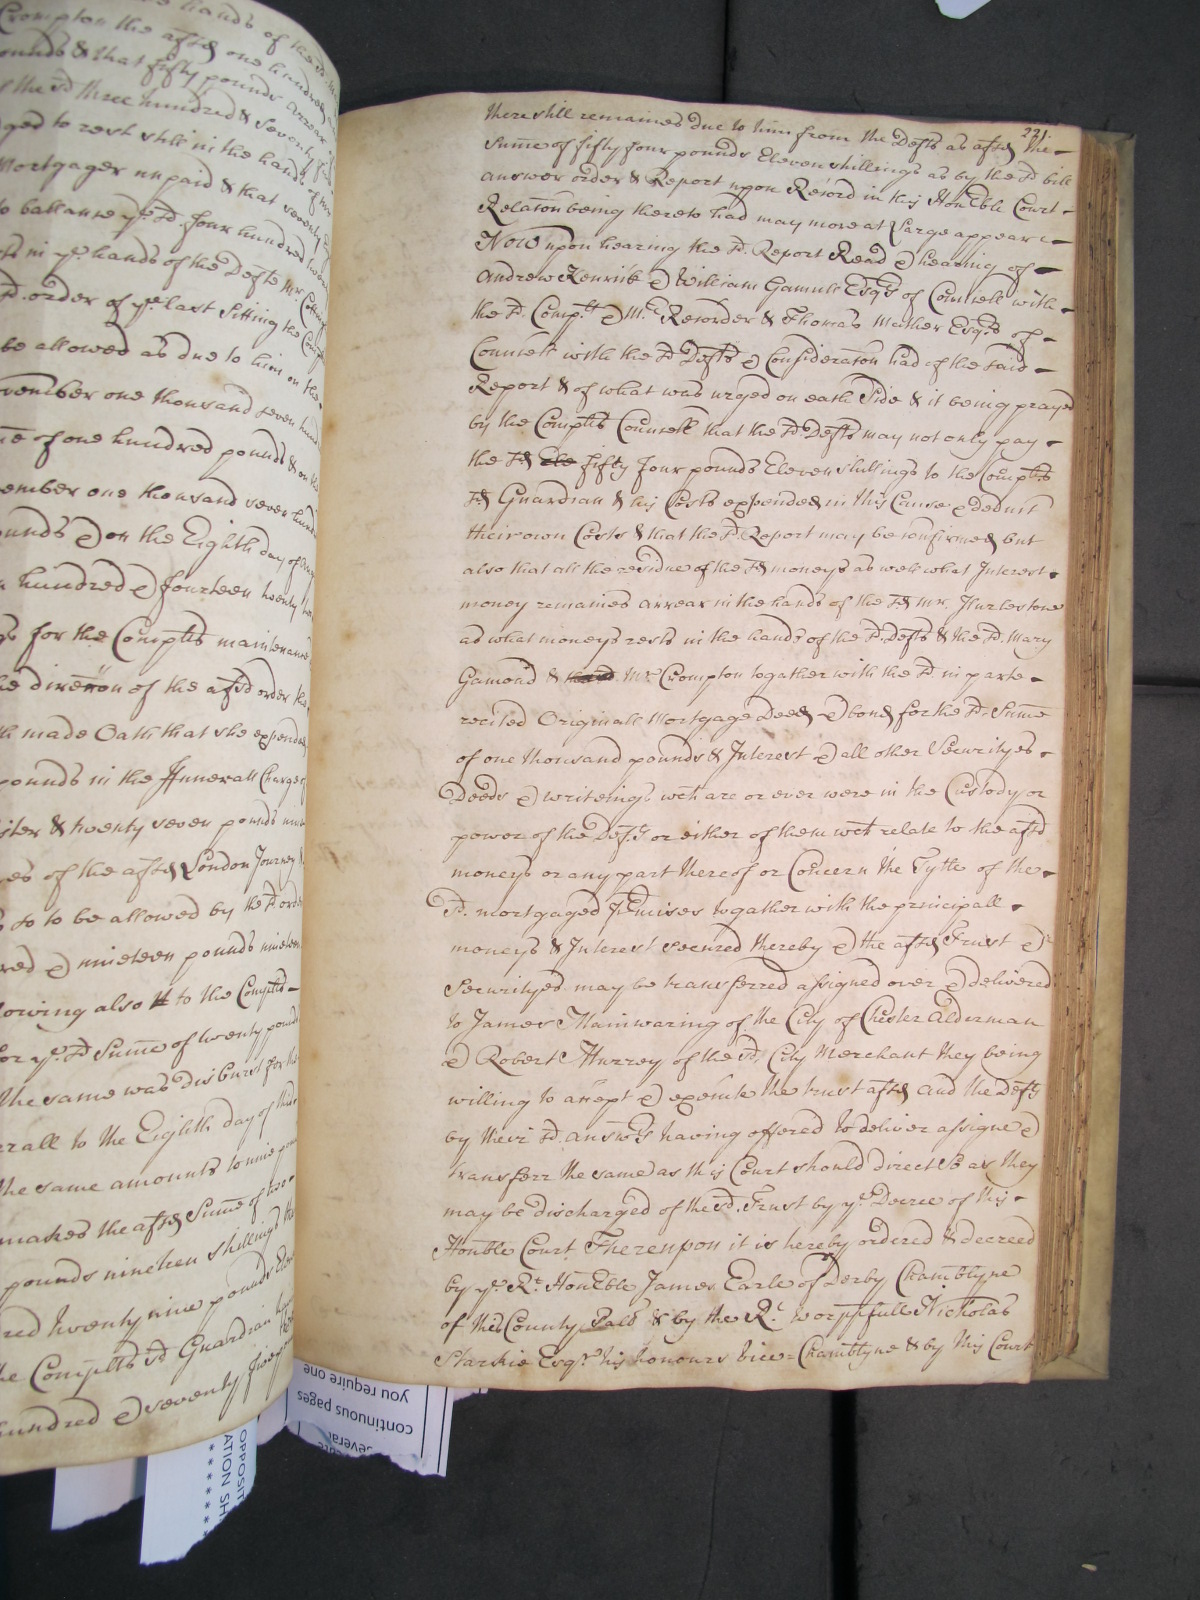 hands of the sd. Mr.
Crompton the aftd one hundred
ounds & that fifty pounds arrear
the sd three hundred & seventy five
ged to rest still in the hands of
Mortgager unpaid & that seventy
to ballanse ye sd. four hundred
ts in ye hands of the Defts Mr.
d. order of ye last Sitting the Compt
be allowed as due to him on the
vember one thousand seven hund
me of one hundred pounds & on the
ember one thousand seven hund
unds & on the Eighth day of
hundred & fourteen twenty
gs for the Complts maintenance
he direc̃on of the afsd order the
th made Oath that she expended
pounds in the ffunerall Charges
ister & twenty seven pounds
es of the aftd London Journey
so to be allowed by the sd orde
red & nineteen pounds nineteen
owing also to the Complts
for ye sd Sum̃e of twenty pounds
the same was disburst for the
rall to the Eighth day of this
the same amounts to nine
makes the aftd Sum̃e of two
pounds nineteen shillings
red twenty nine pounds Eleven
he Complts sd Guardian
hundred & seventy five
221.
there still remaines due to him from the Defts as aftd the
sum̃e of fifty four pounds Eleven shillings as by the sd bill
answer order & Report upon Record in this HonEble Court
Relac̃on being thereto had may more at Large appeare
Now upon hearing the sd. Report Read & hearing of
Andrew Kenrick & William Gamull Esqrs of Councell with
the sd. Complt & Mr. Recorder & Thomas Mather Esqrs of
Councell with the sd Defts & Considerac̃on had of the said
Report & of what was urged on each Side & it being prayed
by the Complts Councell that the sd Defts may not only pay
the sd Ele fifty four pounds Eleven shillings to the Complts
sd Guardian & his Costs expended in this Cause & deduct
their own Costs & that the sd. Report may be confirmed but
also that all the residue of the sd moneys as well what Interest
money remaines arrear in the hands of the sd Mr. Hurlestone
as what moneys rests in the hands of the sd. Defts & the sd. Mary
Gamond & Mr. Crompton together with the sd. in parte
recited Originall Mortgage Deed & bond for the sd. Sum̃e
of one thousand pounds & Interest & all other Securityes
Deeds & writeings wch are or ever were in the Custody or
power of the Defts or either of them wch relate to the aftd
moneys or any part thereof or Concern the Tytle of the
sd. mortgaged prmises together with the principall
moneys & Interest secured thereby & the aftd Trust &
Securityes may be transferred assigned over & delivered
to James Mainwaring of the City of Chester Alderman
& Robert Murrey of the sd City Merchant they being
willing to accept & execute the trust aftd And the Defts
by their sd. answrs having offered to deliver assigne &
transferr the same as this Court should direct So as they
may be discharged of the sd. Trust by ye Decree of this
Honble Court Thereupon it is hereby ordered & decreed
by ye Rt. HonEble James Earle of Derby Chambrlyne
of this County Pals & by the Rt. worpfull Nicholas
Starkie Esqr his honours vice=Chambrlyne & by this Court
you require one
continuous pages
several
OPPOSIT
ATION SH